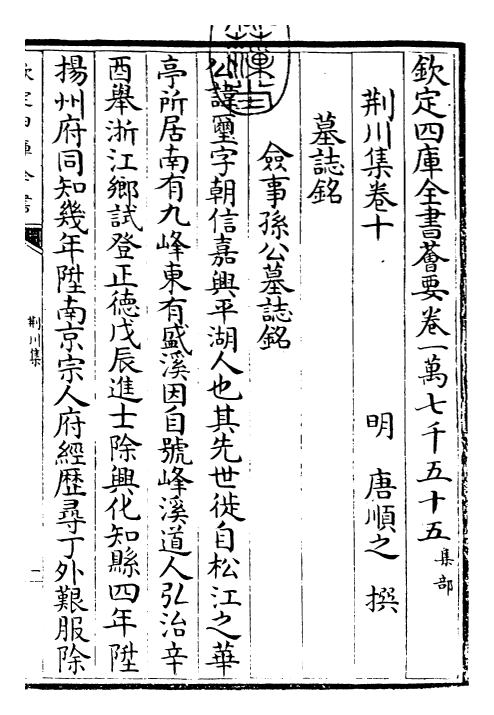 欽定四庫全書薈要卷一萬七千五十五集部
荆川集卷十
明 唐順之 撰
墓誌銘
僉事孫公墓誌銘
公諱璽字朝信嘉興平湖人也其先世徙自松江之華
亭所居南有九峰東有盛溪因自號峰溪道人弘治辛
酉舉浙江鄉試登正德戊辰進士除興化知縣四年陞
揚州府同知幾年陞南京宗人府經歷尋丁外艱服除
欽定四庫全書
荆川集